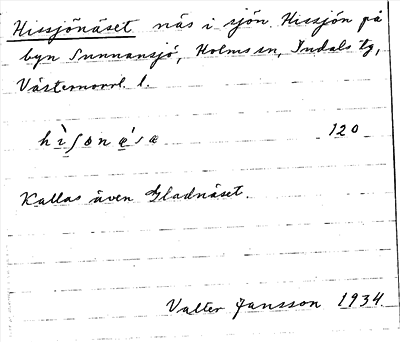 Hissjönäset näs i sjön Hissjön på
byn Sunnansjö, Holms sn, Indals tg,
Västernorrl. l.
hìſonésa 120
Kallas även Gladnäset.
Valter Jansson 1934.